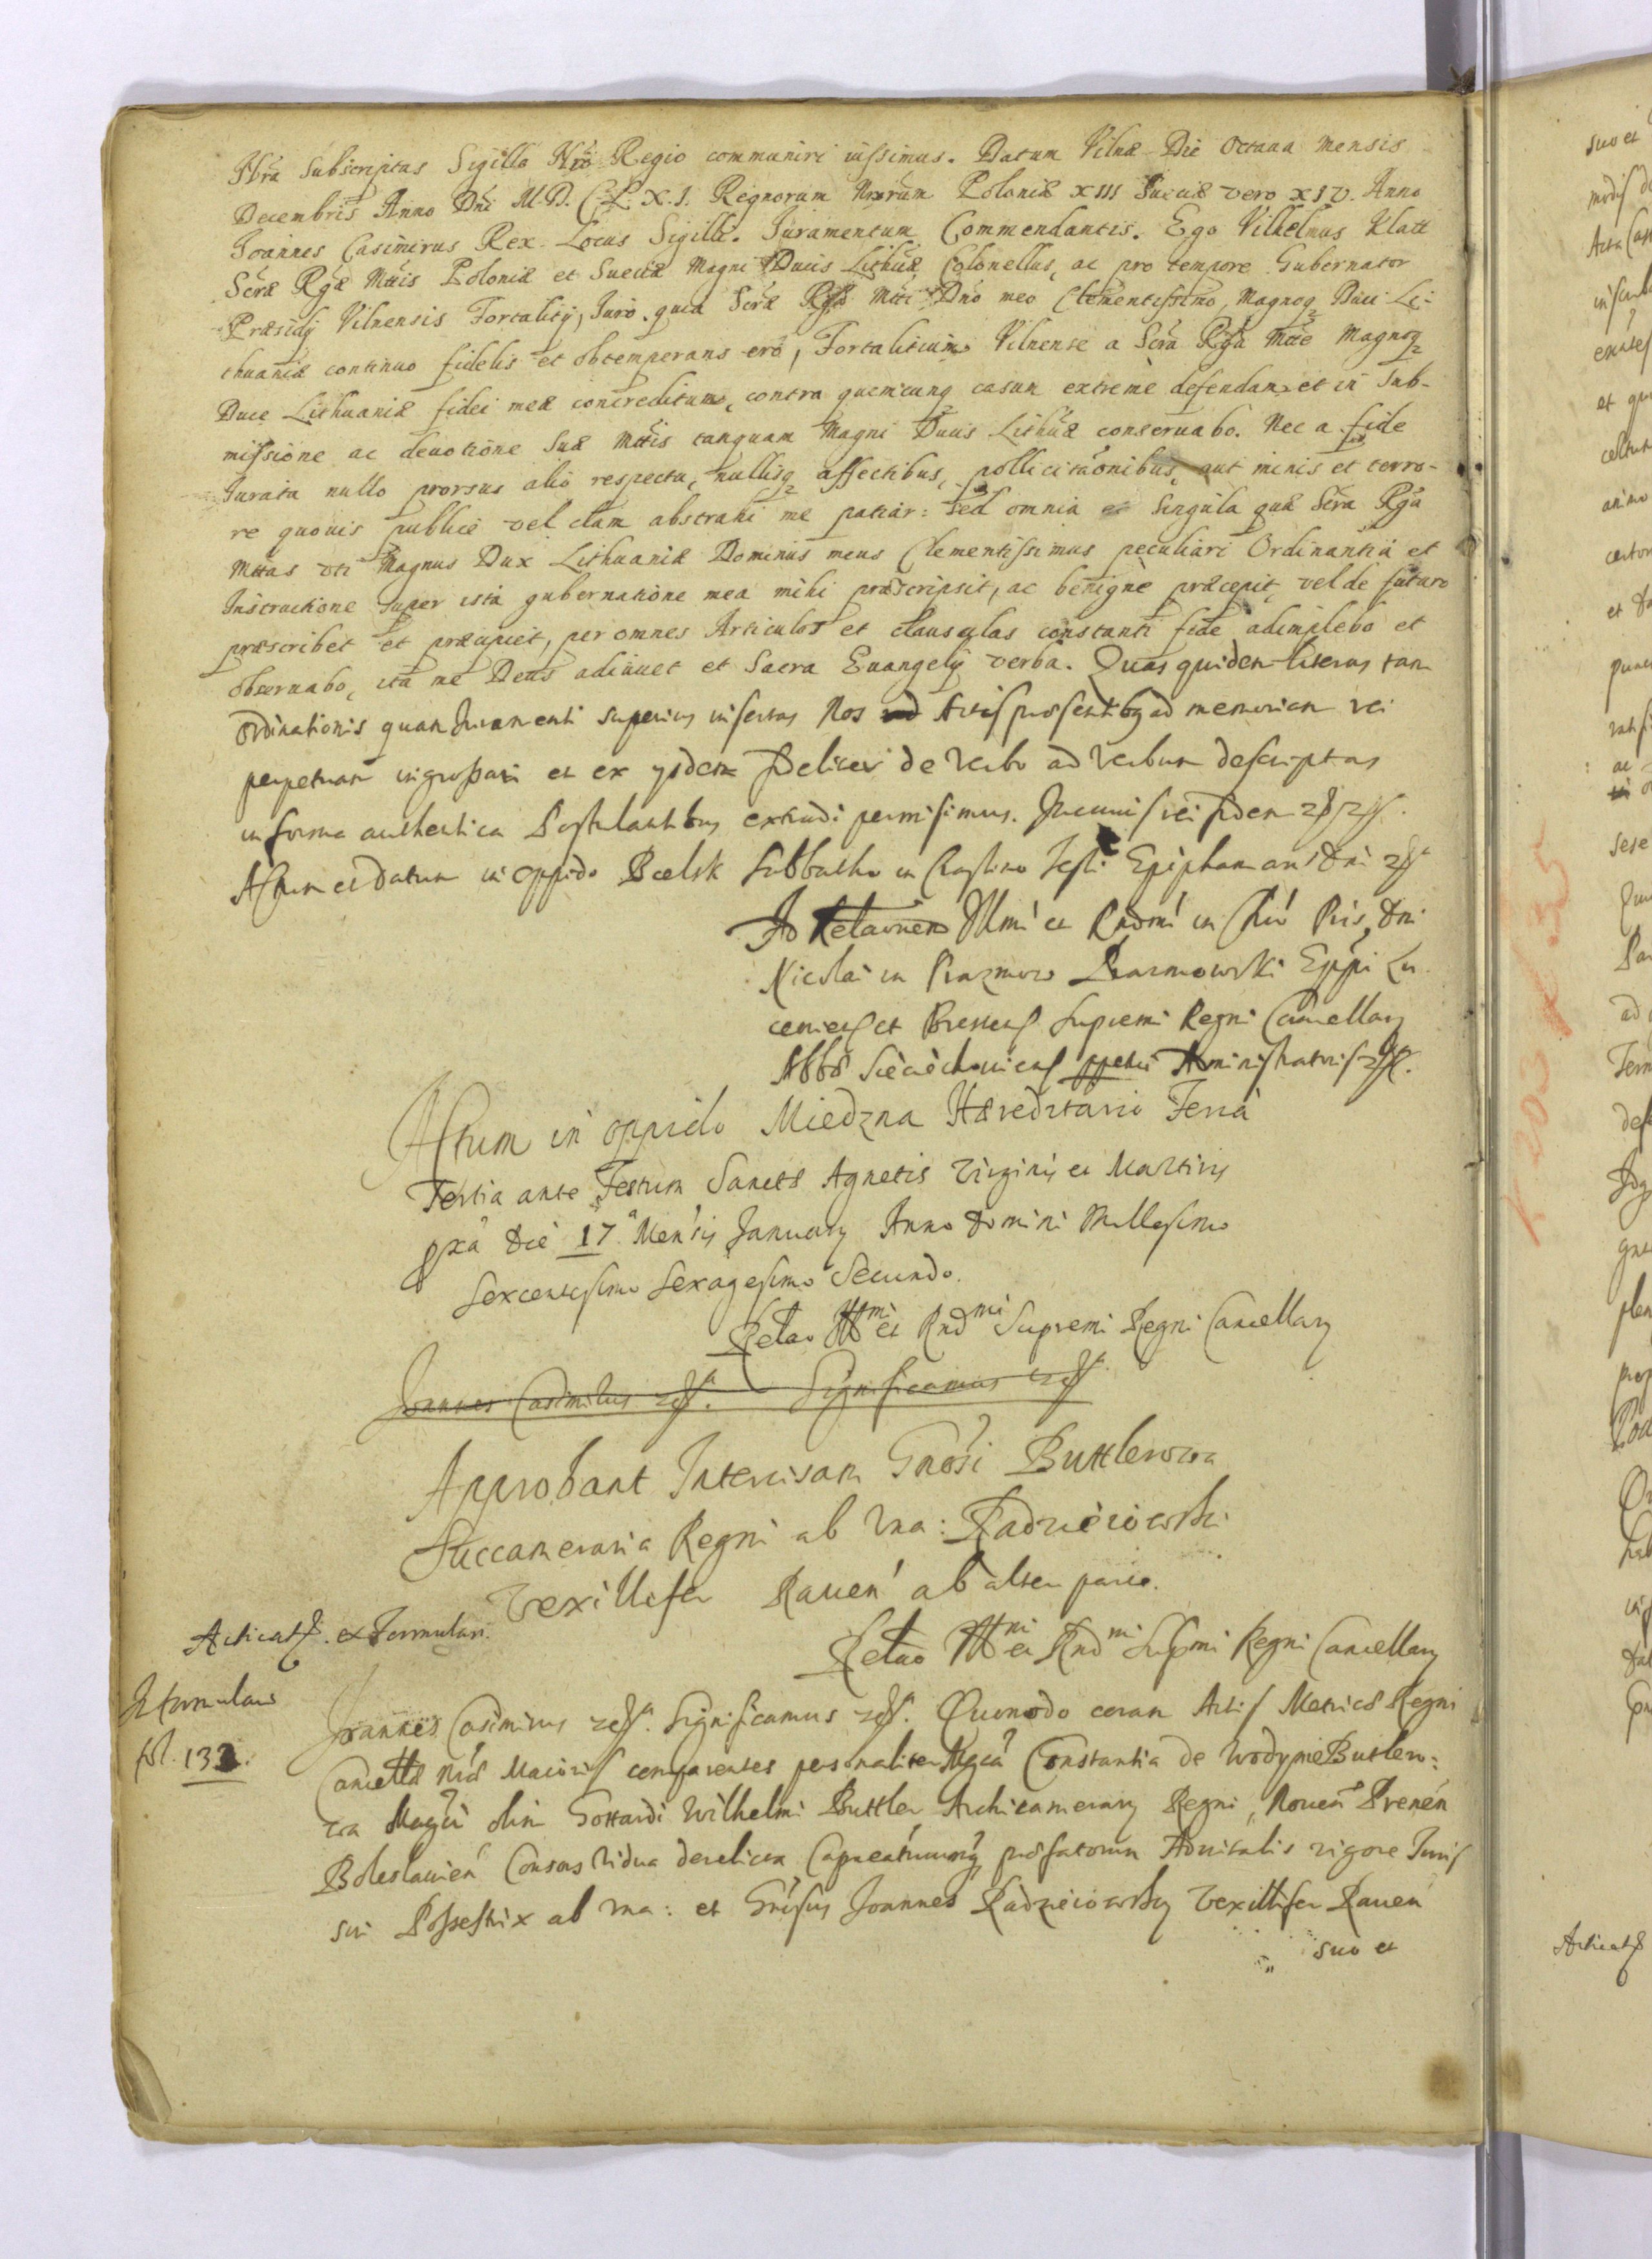 Nra Subscriptas Sigillo Nro Regio communiri iussimus. Datum Vilnæ Die Octaua mensis
Decembris Anno Dni M.D.C.L.X.I. Regnorum Nrorum Poloniæ XIII Sueciæ vero XIV. Anno
Joannes Casimirus Rex. Locus Sigilli. Juramentum Commendantis. Ego Vilhelmus Klatt
Scræ Rgæ Mttis Poloniæ et Sueciæ Magni Ducis Lithuæ, Colonellus, ac pro tempore Gubernator
Præsidij Vilnensis Fortalitij, Juro, quia Scræ Rgæ Mtti Dno meo Clementissimo, Magnoq Duci Li-
thuaniæ continuo fidelis et obtemperans ero, Fortalitium Vilnense a Scra Rga Mtte Magnoq
Duce Lithuaniæ fidei meæ concreditum, contra quemcunq casum extreme defendam et in Sub-
missione ac deuotione Suæ Mttis tanquam Magni Ducis Lithuæ conseruabo. Nec a fide
Jurata nullo prorsus alio respectu, nullisq affectibus, pollicitaonibus, aut minis et terro-
re quouis publice vel clam abstrahi me patiar: Sed omnia et Singula quæ Scra Rga
Mttas vti Magnus Dux Lithuaniæ Dominus meus Clementissimus peculiari Ordinantia et
Instructione super ista gubernatione mea mihi præscripsit, ac benigne præcepit, vel de futuro
præscribet et præcipiet, per omnes Articulos et clausulas constanti fide adimplebo et
obseruabo, ita me Deus adiuuet et Sacra Euangelij verba. Quas quidem literas tam
ordinationis quam Juramenti superius insertas Nos Actis præsentibq ad memoriam rei
perpetuam ingrossari et ex ijsdem Fideliter de verbo ad verbum descriptas
in forma authentica Postulantibus extradi permisimus. In cuius rei fidem
Actum et datum in oppido Bielsk Sabbatho in Crastino Festi Epiphaniarum Dni
Ad Relaonem Illmi et Rndmi in Chro Pris, Dni
Nicolai in Prazmow Prazmowski Eppi Lu-
ceorien et Bresten Supremi Regni Cancellarij
Abbæ Sieciechouien ppetui Administratoris
Actum in oppido Miedzna Hæreditario Feria
Tertia ante Festum Sanctæ Agnetis Virginis et Martiris
pxa Die 17ª Mensis January Anno Domini Millesimo
Sexcentesimo Sexagesimo Secundo.
Relao Illmi et Rndmi Supremi Regni Cancellarij
Joannes Casimirus Significamus
Approbant Intercisam Gnosi Buttlerowa
Succameraria Regni ab vna: Radzieiowski
Vexillifer Rauen ab altera parte.
Acticat. ex Formulari.
Relao Illmi et Rndmi Supmi Regni Cancellarij
In formulari
fol. 133.
Joannes Casimirus Significamus Quomodo coram Actis Metricæ Regni
Cancellæ Nræ Maioris comparentes personaliter Mgca Constantia de Wodynie Butlero-
wa Magci olim Gottardi Wilhelmi Buttler Archicamerarij Regni, Nouen Prenen
Boleslauien Consors Vidua derelicta Capneatuumq præfatorum Aduitalis vigore Juris
sui Possestrix ab vna: et Gnosus Joannes Radzieiowsky Vexillifer Rauen
suo et